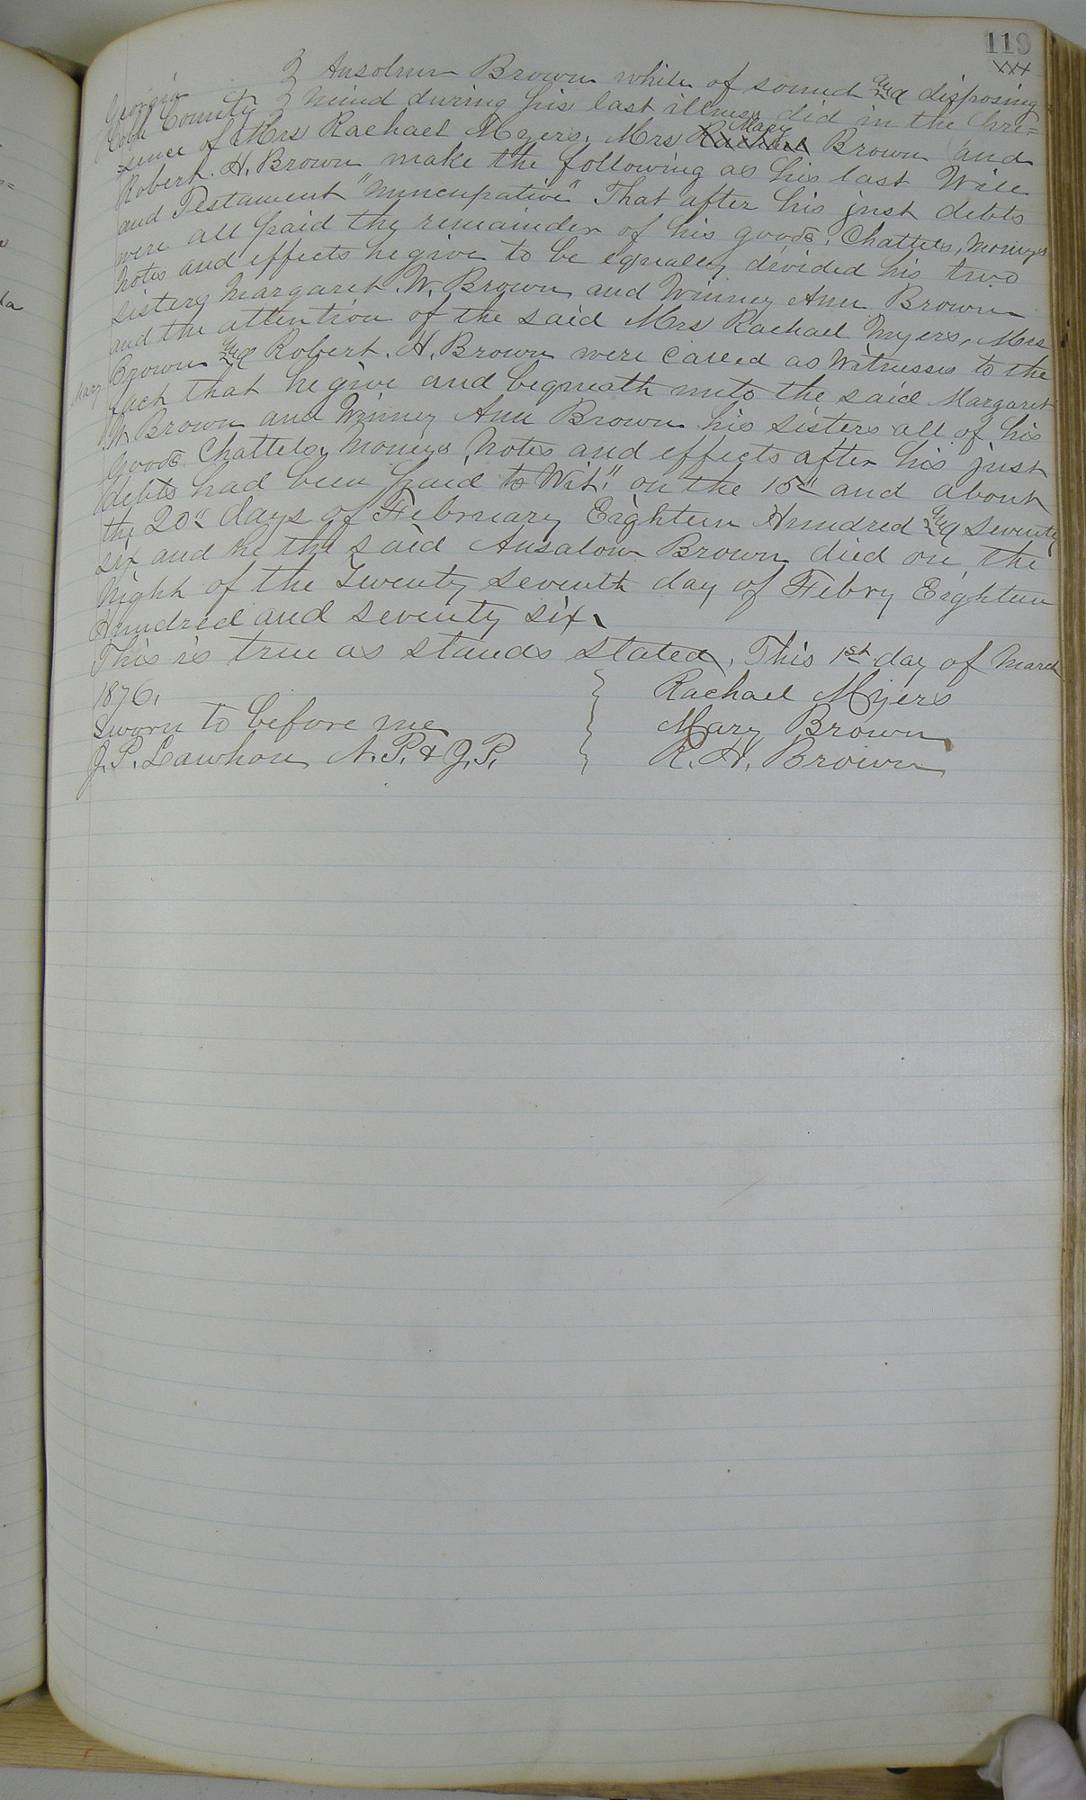 119
Georgia } Ansolum Brown while of sound and disposing
Cobb County } mind during his last illness did in the pre=
sence of Mrs Rachael Myers, Mrs Rachael Mary Brown and
Robert. H. Brown make the following as his last Will
and Testament "Nuncupative" That after his just debts
were all paid the remainder of his goods, Chattels, Moneys
Notes and effects he give to be equally divided his two
sisters Margaret. W. Brown and Winney Ann Brown
and the attention of the said Mrs Rachael Myers, Mrs
Mary Brown and Robert. H. Brown were called as Witnesses to the
fact that he give and bequeath unto the said Margaret
W Brown and Winney Ann Brown his sisters all of his
Goods Chattels, Moneys Notes and effects after his just
debts had been paid to Wit." on the 15" and about
the 20" days of February Eighteen Hundred and Seventy
six and he the said Ansalom Brown died on the
Night of the Twenty seventh day of Febry Eighteen
Hundred and seventy six.
This is true as stands stated, This 1st day of March
1876. } Rachael Myers
Sworn to before me } Mary Brown
J. P. Lawhon N. P. & J. P. } R. H. Brown